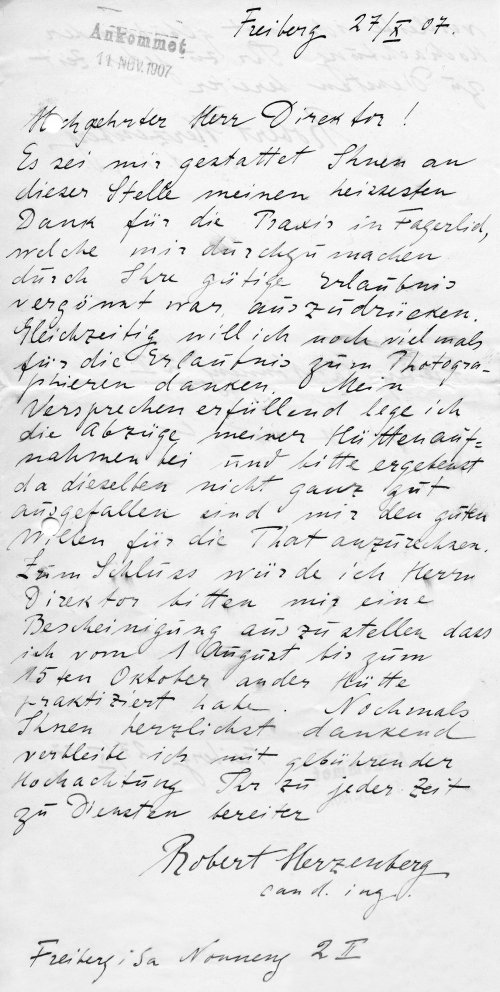 Freiberg 27/X 07.
Ankommet
11 NOV. 1907
Hochgehrter Herr Direktor!
Es sei mir gestattet Ihnen an
dieser Stelle meinen heissesten
Dank für die Praxis in Fagerlid,
welche mir durchzumachen
durch Ihre gütige Erlaubnis
vergönnt war auszudrücken.
Gleichzeitig will ich noch vielmals
für die Erlaubnis zum Photogra-
phieren danken. Mein
Versprechen erfüllend lege ich
die Abzüge meiner Hüttenauf=
nahmen bei und bitte ergebenst
da dieselben nicht ganz gut
ausgefallen sind mir den guten
Willen für die That anzurechnen.
Zum Schluss würde ich Herrn
Direktor bitten mir eine
Bescheinigung auszustellen dass
ich vom 1 August bis zum
15ten Oktober an der Hütte
praktiziert habe. Nochmals
Ihnen herzlichst dankend
verbleibe ich mit gebührender
Hochachtung Ihr zu jeder Zeit
zu Diensten bereiter
Robert Herzenberg
cand. ing.
Freiberg i Sa 2 II